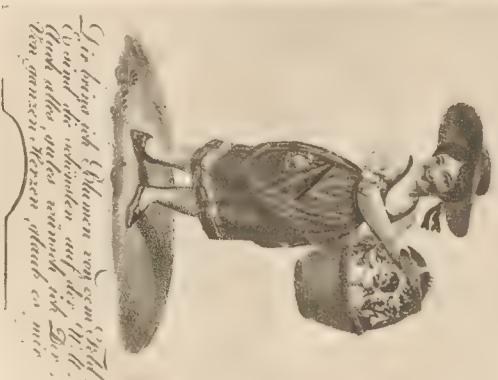 Dir bring ich Blumen von dem Feld
Es sind die schönsten auf der Welt
Auch alles gutes wünsch ich Dir.
Von ganzen Herzen, glaub es mir